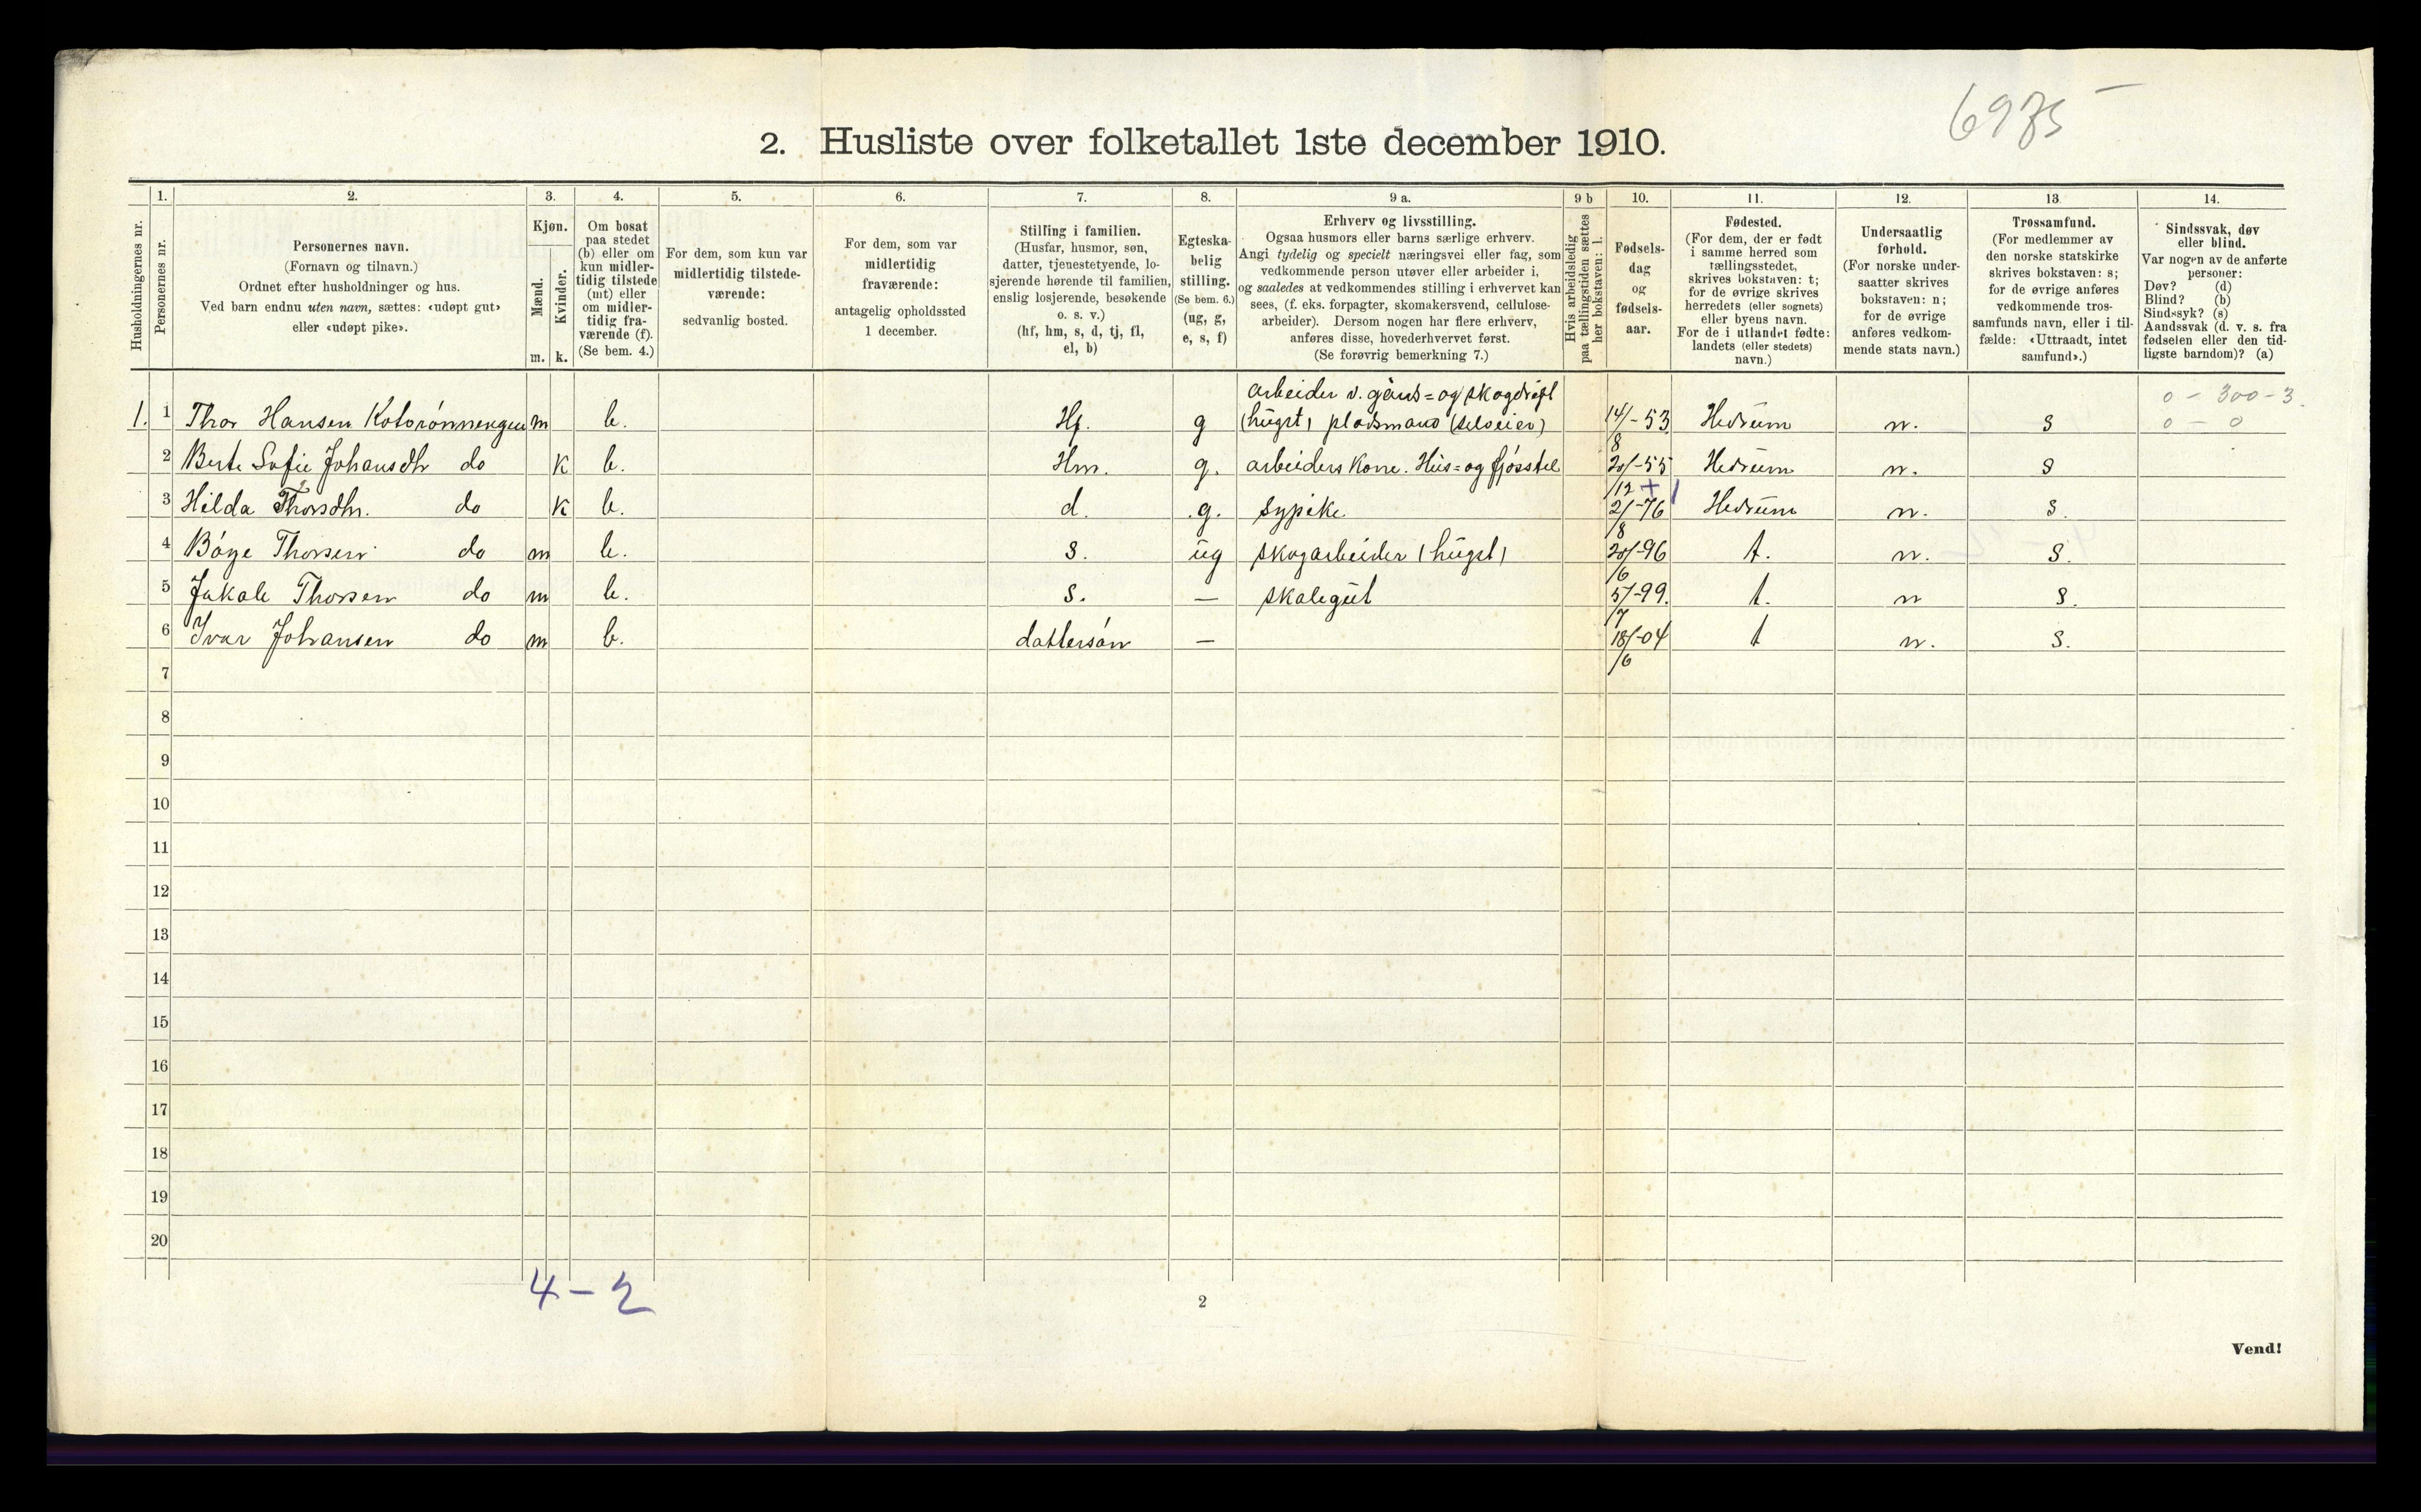 6975
2. Husliste over folketallet 1ste december 1910.
Husholdningernes nr.
1.
Personernes nr.
2.
Personernes navn.
(Fornavn og tilnavn.)
Ordnet efter husholdninger og hus.
Ved barn endnu uten navn, sættes: «udøpt gut»
eller «udøpt pike».
3.
Kjøn.
Mænd.
Kvinder.
m. k.
4.
Om bosat
paa stedet
(b) eller om
kun midler-
tidig tilstede
(mt) eller
om midler-
tidig fra-
værende (f).
(Se bem. 4.)
5.
For dem, som kun var
midlertidig tilstede-
værende:
sedvanlig bosted.
6.
For dem, som var
midlertidig
fraværende:
antagelig opholdssted
1 december.
7.
Stilling i familien.
(Husfar, husmor, søn,
datter, tjenestetyende, lo-
sjerende hørende til familien,
enslig losjerende, besøkende
o. s. v.)
(hf, hm, s, d, tj, fl,
el, b)
8.
Egteska-
belig
stilling.
(Se bem. 6.)
(ug, g,
e, s, f)
9 a.
Erhverv og livsstilling.
Ogsaa husmors eller barns særlige erhverv.
Angi tydelig og specielt næringsvei eller fag, som
vedkommende person utøver eller arbeider i,
og saaledes at vedkommendes stilling i erhvervet kan
sees, (f. eks. forpagter, skomakersvend, cellulose-
arbeider). Dersom nogen har flere erhverv,
anføres disse, hovederhvervet først.
(Se forøvrig bemerkning 7.)
9 b
Hvis arbeidsledig
paa tællingstiden sættes
her bokstaven: l.
10.
Fødsels-
dag
og
fødsels-
aar.
11.
Fødested.
(For dem, der er født
i samme herred som
tællingsstedet,
skrives bokstaven: t;
for de øvrige skrives
herredets (eller sognets)
eller byens navn.
For de i utlandet fødte:
landets (eller stedets)
navn.)
12.
Undersaatlig
forhold.
(For norske under-
saatter skrives
bokstaven: n;
for de øvrige
anføres vedkom-
mende stats navn.)
13.
Trossamfund.
(For medlemmer av
den norske statskirke
skrives bokstaven: s;
for de øvrige anføres
vedkommende tros-
samfunds navn, eller i til-
fælde: «Uttraadt, intet
samfund».)
14.
Sindssvak, døv
eller blind.
Var nogen av de anførte
personer:
Døv? (d)
Blind? (b)
Sindssyk? (s)
Aandssvak (d. v. s. fra
fødselen eller den tid-
ligste barndom)? (a)
arbeider v. gaards= og skogdrift 0 - 300 - 3
1. 1 Thor Hansen m b. Hf. g (hugst) pladsmand (selveier) 14/8-53 Hedrum n. s 0 - 0
2 Berte Sofie Johansdtr do k b. Hm. g. arbeiders kone. Hus= og fjøsstel 20/12-55 Hedrum n. s
3 Hilda Thorsdtr. do k b. d. g. Sypike 2/8-76 Hedrum n. s.
4 Børge Thorsen do m b. s. ug skogarbeider (hugst) 20/6-96 t. n. s.
5 Jakob Thorsen do m b. s. — skolegut 5/7-99. t. n s.
6 Ivar Johansen do m b. dattersøn — 18/6-04 t n. s.
7
8
9
10
11
12
13
14
15
16
17
18
19
20
4 - 2
2
Vend!